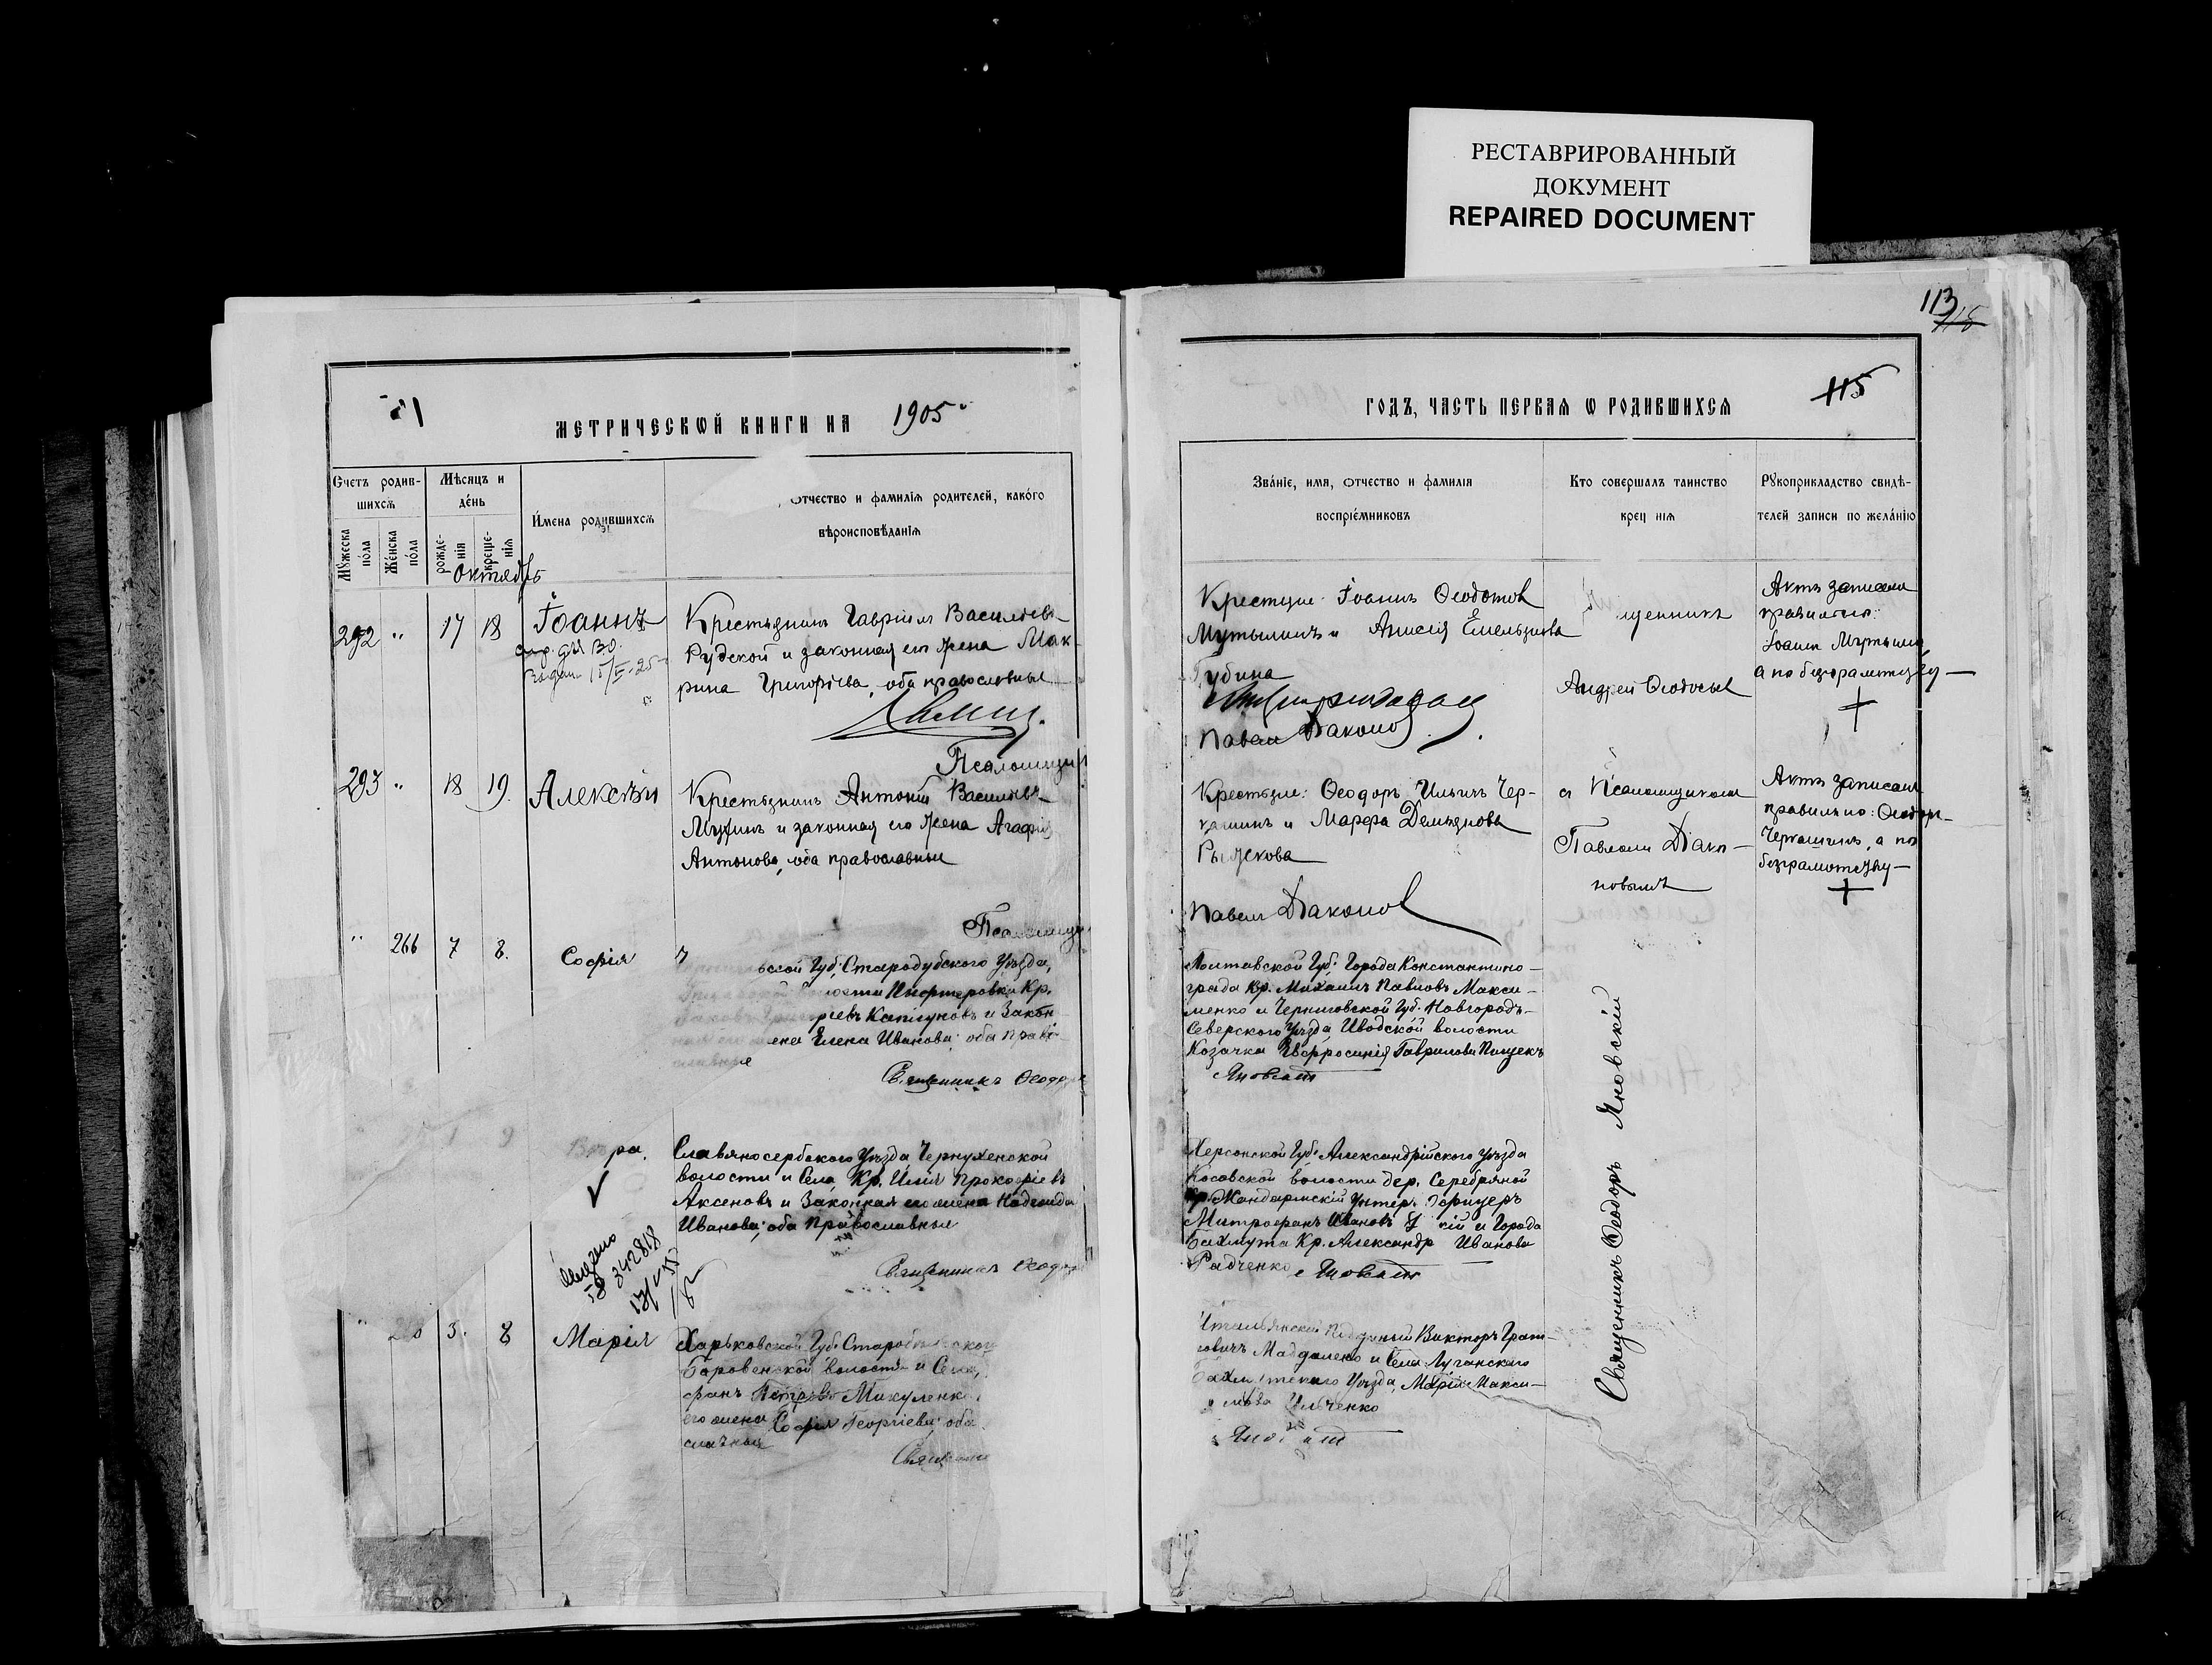 РЕСТАВРИРОВАННЫЙ
ДОКУМЕНТ
REPAIRED DOCUMENT
113
115
МЕТРИЧЕСКѠЙ КНИГИ НА 1905
ГОДЪ, ЧАСТЬ ПЕРВАѦ Ѡ РОДИВШИХСѦ
Счетъ родив-
шихсѧ
Мꙋжеска
по́ла
Же́нска
по́ла
Мѣсяцъ и
де́нь
рожде-
нія
креще-
нія
И́мена родившихсѧ
Отчество и фамилія родителей, како́го
вѣроисповѣданія
Зва́ніе, имя, отчество и фамилія
воспріе́мниковъ
Кто совершалъ таинство
крещ нія
Рꙋкоприкладство свидѣ-
телей записи по жела́нію
Октябрь
292 " 17 18 Іоаннъ
Крестьянинъ Гавріилъ Васильевъ
Рудской и законная его жена Мак-
рина Григорьева, оба православные
Крестьяне: Іоаннъ Ѳеодотов
Мутылинъ и Анисія Емельянова
Губина
Павелъ Дьяконов
щенникъ
Андрей
Актъ записанъ
правильно:
Іоаннъ Мутылин
а по безграмотству
Псаломщикъ
293 " 18 19. Алексѣй
Крестьянинъ Антоній Васильевъ
и законная его жена Агафія
Антонова, оба православные
Крестьяне: Ѳеодоръ Ильинъ Чер-
кашинъ и Марѳа Демьянова
Рыжкова
Павелъ Дьяконов
съ Псаломщикомъ
Павломъ Дьяко-
новымъ
Актъ записанъ
правильно: Ѳеодоръ
Черкашинъ, а по
безграмотству
Псаломщи
" 266 7 8. Софія
вской Губ. Стародубского Уѣзда,
Кр.
и Закон-
ена Елена Иванова; оба Право-
славные
Священникъ Ѳеодоръ
Полтавской Губ. Города Константино-
града Кр. Михаилъ Павловъ Макси-
менко и Черниговской Губ. Новгородъ-
Северского Уѣзда Ивотской волости
Козачка Евфросинія Гаврилова
Яновскій
9
ра.
Славяносербского Уѣзда Чернухенской
волости и Села, Кр. Илія Прокофіевъ
Аксеновъ и Законная его жена Надежда
Иванова; оба Православные
Священникъ Ѳеодоръ
Херсонской Губ. Александрійского Уѣзда
Косовской волости дер. Серебряной
Кр. Жандармскій Унтеръ Офицеръ
Митрофанъ Ивановъ и Города
Бахмута Кр. Александр Иванова
Радченко Яновскій
Священникъ Ѳеодоръ Яновскій
3. 8 Марія
Харьковской Губ. Староб
Боровенской волости и Села,
фанъ Петровъ Микуленк
его жена Софія Георгіева; оба
славные
Священн
Итальянскій Подданый Викторъ
Маддалено и Села Луганского
Уѣзда, Марія Макси-
Ильченко